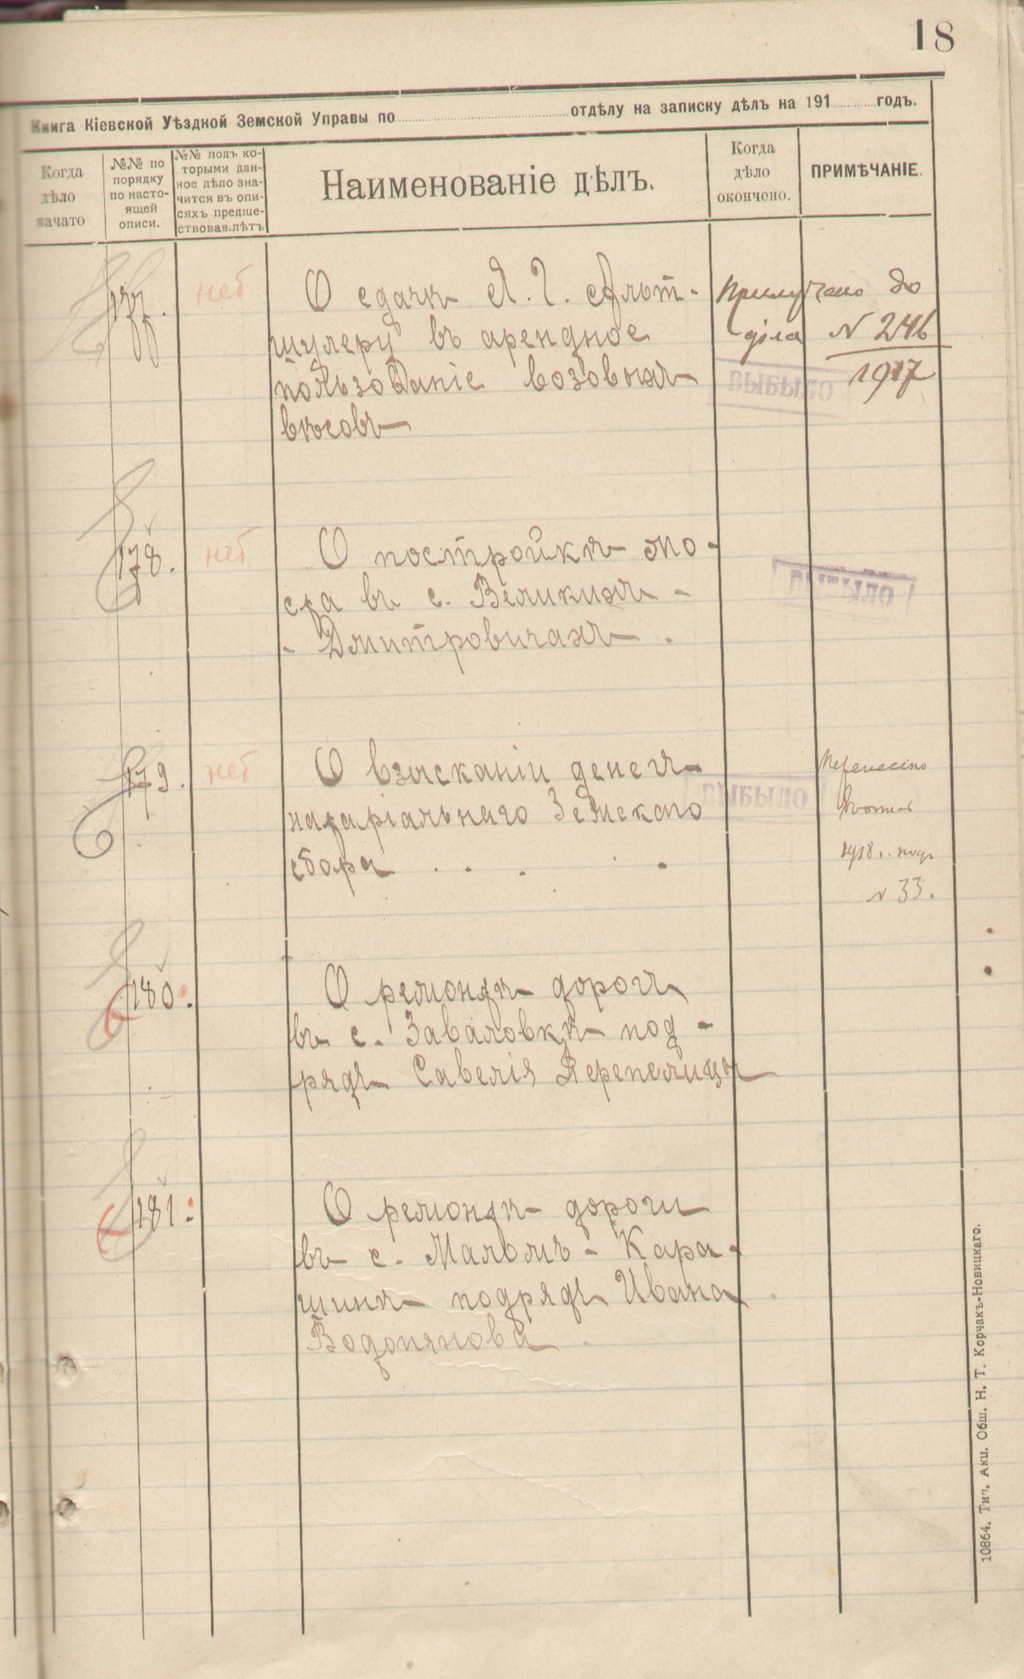 18
Книга Кіевской Уѣздной Земской Управы по отдѣлу на записку дѣлъ на 191 годъ.
Когда
дѣло
начато
№№ по
порядку
по насто-
ящей
описи.
№№ подъ ко-
торыми дан-
ное дѣло зна-
чится въ опи-
сяхъ предше-
ствовав.лѣтъ
Наименованіе дѣлъ.
Когда
дѣло
окончено.
ПРИМѢЧАНІЕ.
177. нет О сдачѣ Я. Г. Альт-
шулеру въ арендное
пользованіе возовыхъ
вѣсовъ
Прилучено до
діла N 246
1917
ВЫБЫЛО
178. нет О постройкѣ мо-
ста въ с. Великихъ-
- Дмитровичахъ.
ВЫБЫЛО
179. нет О взысканіи денегъ
натаріальнаго Земскаго
сбора
ВЫБЫЛО
Перенесено
1918 г. под
N 33.
180. О ремонтѣ дорогъ
въ с. Заваловкѣ под-
рядъ Савелія Перепелицы
181. О ремонтѣ дороги
въ с. Маломъ-Кара-
шинѣ подрядъ Ивана
Водопянова
10864. Тип. Акц. Общ. Н. Т. Корчакъ-Новицкаго.